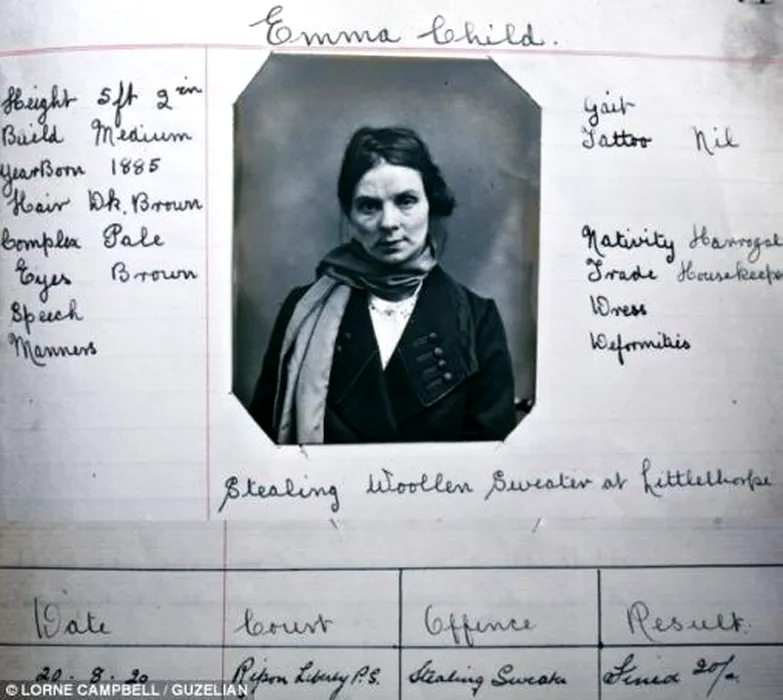 Emma Child.
Height 5ft 2in
Build Medium
Year Born 1885
Hair Dk. Brown
Complex Pale
Eyes Brown
Speech
Manners
Gait
Tattoo Nil
Nativity Harrogat
Trade Housekeepe
Dress
Deformities
Stealing Woollen Sweater at Littlethorpe
Date Court Offence Result.
20 . 8 . 20 Ripon Liberty P.S. Stealing Sweater Fined 20/-
© LORNE CAMPBELL / GUZELIAN